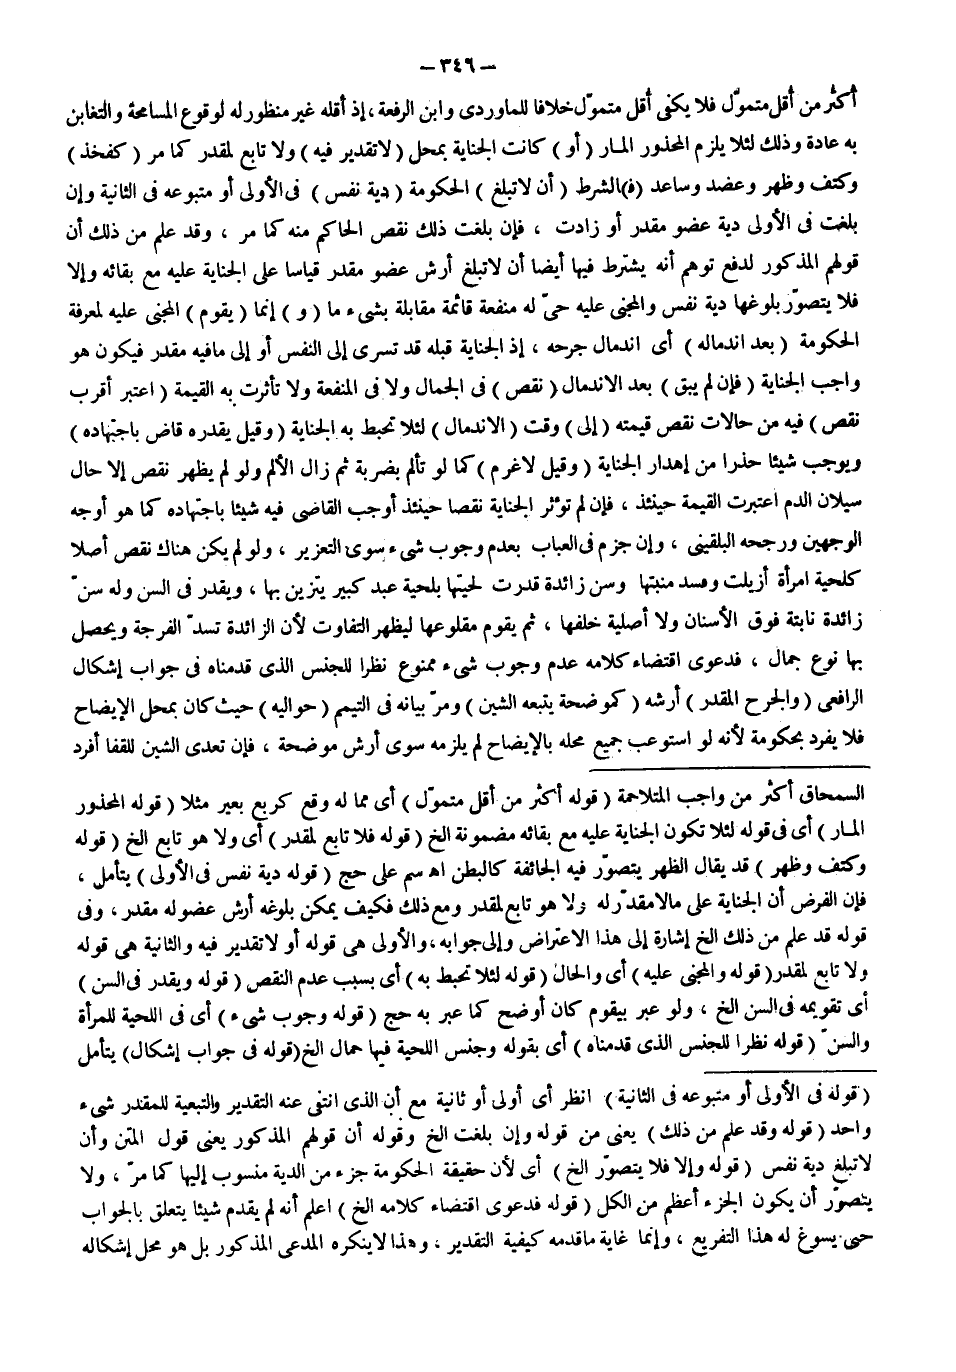 — ٣٤٦ —
أكثر من أقل متموّل فلا يكفى أقل متموّل خلافا للماوردى وابن الرفعة ، إذ أقله غير منظور له لوقوع المسامحة والتغابن
به عادة وذلك لئلا يلزم المحذور المـار ( أو ) كانت الجناية بمحل ( لاتقدير فيه ) ولا تابع لمقدر كما مر ( كفخذ )
وكتف وظهر وعضد وساعد ( ف ) الشرط ( أن لاتبلغ ) الحكومة ( دية نفس ) فى الأولى أو متبوعه فى الثانية وإن
بلغت فى الأولى دية عضو مقدر أو زادت ، فإن بلغت ذلك نقص الحاكم منه كما مر ، وقد علم من ذلك أن
قولهم المذكور لدفع توهم أنه يشترط فيها أيضا أن لاتبلغ أرش عضو مقدر قياسا على الجناية عليه مع بقائه وإلا
فلا يتصوّر بلوغها دية نفس والمجنى عليه حىّ له منفعة قائمة مقابلة بشىء ما ( و ) إنما ( يقوم ) المجنى عليه لمعرفة
الحكومة ( بعد اندماله ) أى اندمال جرحه ، إذ الجناية قبله قد تسرى إلى النفس أو إلى مافيه مقدر فيكون هو
واجب الجناية ( فإن لم يبق ) بعد الاندمال ( نقص ) فى الجمال ولا فى المنفعة ولا تأثرت به القيمة ( اعتبر أقرب
نقص ) فيه من حالات نقص قيمته ( إلى ) وقت ( الاندمال ) لئلا تحبط به الجناية ( وقيل يقدره قاض باجتهاده )
ويوجب شيئا حذرا من إهدار الجناية ( وقيل لاغرم ) كما لو تألم بضربة ثم زال الألم ولو لم يظهر نقص إلا حال
سيلان الدم اعتبرت القيمة حينئذ ، فإن لم تؤثر الجناية نقصا حينئذ أوجب القاضى فيه شيئا باجتهاده كما هو أوجه
الوجهين ورجحه البلقينى ، وإن جزم فى العباب بعدم وجوب شىء سوى التعزير ، ولو لم يكن هناك نقص أصلا
كلحية امرأة أزيلت وفسد منبتها وسن زائدة قدرت لحيتها بلحية عبد كبير يتزين بها ، ويقدر فى السن وله سنّ
زائدة نابتة فوق الأسنان ولا أصلية خلفها ، ثم يقوم مقلوعها ليظهر التفاوت لأن الزائدة تسدّ الفرجة ويحصل
بها نوع جمال ، فدعوى اقتضاء كلامه عدم وجوب شىء ممنوع نظرا للجنس الذى قدمناه فى جواب إشكال
الرافعى ( والجرح المقدر ) أرشه ( كموضحة يتبعه الشين ) ومرّ بيانه فى التيمم ( حواليه ) حيث كان بمحل الإيضاح
فلا يفرد بحكومة لأنه لو استوعب جميع محله بالإيضاح لم يلزمه سوى أرش موضحة ، فإن تعدى الشين للقفا أفرد
السمحاق أكثر من واجب المتلاحمة ( قوله أكثر من أقل متموّل ) أى مما له وقع كربع بعير مثلا ( قوله المحذور
المـار ) أى فى قوله لئلا تكون الجناية عليه مع بقائه مضمونة الخ ( قوله فلا تابع لمقدر ) أى ولا هو تابع الخ ( قوله
وكتف وظهر ) قد يقال الظهر يتصوّر فيه الجائفة كالبطن اه سم على حج ( قوله دية نفس فى الأولى ) يتأمل ،
فإن الفرض أن الجناية على مالامقدّر له ولا هو تابع لمقدر ومع ذلك فكيف يمكن بلوغه أرش عضو له مقدر ، وفى
قوله قد علم من ذلك الخ إشارة إلى هذا الاعتراض وإلى جوابه ، والأولى هى قوله أو لاتقدير فيه والثانية هى قوله
ولا تابع لمقدر ( قوله والمجنى عليه ) أى والحال ( قوله لئلا تحبط به ) أى بسبب عدم النقص ( قوله ويقدر فى السن )
أى تقويمه فى السن الخ ، ولو عبر بيقوم كان أوضح كما عبر به حج ( قوله وجوب شىء ) أى فى اللحية للمرأة
والسنّ ( قوله نظرا للجنس الذى قدمناه ) أى بقوله وجنس اللحية فيها جمال الخ ( قوله فى جواب إشكال ) يتأمل
( قوله فى الأولى أو متبوعه فى الثانية ) انظر أى أولى أو ثانية مع أن الذى انتفى عنه التقدير والتبعية للمقدر شىء
واحد ( قوله وقد علم من ذلك ) يعنى من قوله وإن بلغت الخ وقوله أن قولهم المذكور يعنى قول المتن وأن
لاتبلغ دية نفس ( قوله وإلا فلا يتصوّر الخ ) أى لأن حقيقة الحكومة جزء من الدية منسوب إليها كما مرّ ، ولا
يتصوّر أن يكون الجزء أعظم من الكل ( قوله فدعوى اقتضاء كلامه الخ ) اعلم أنه لم يقدم شيئا يتعلق بالجواب
حتى يسوغ له هذا التفريع ، وإنما غاية ماقدمه كيفية التقدير ، وهذا لاينكره المدعى المذكور بل هو محل إشكاله